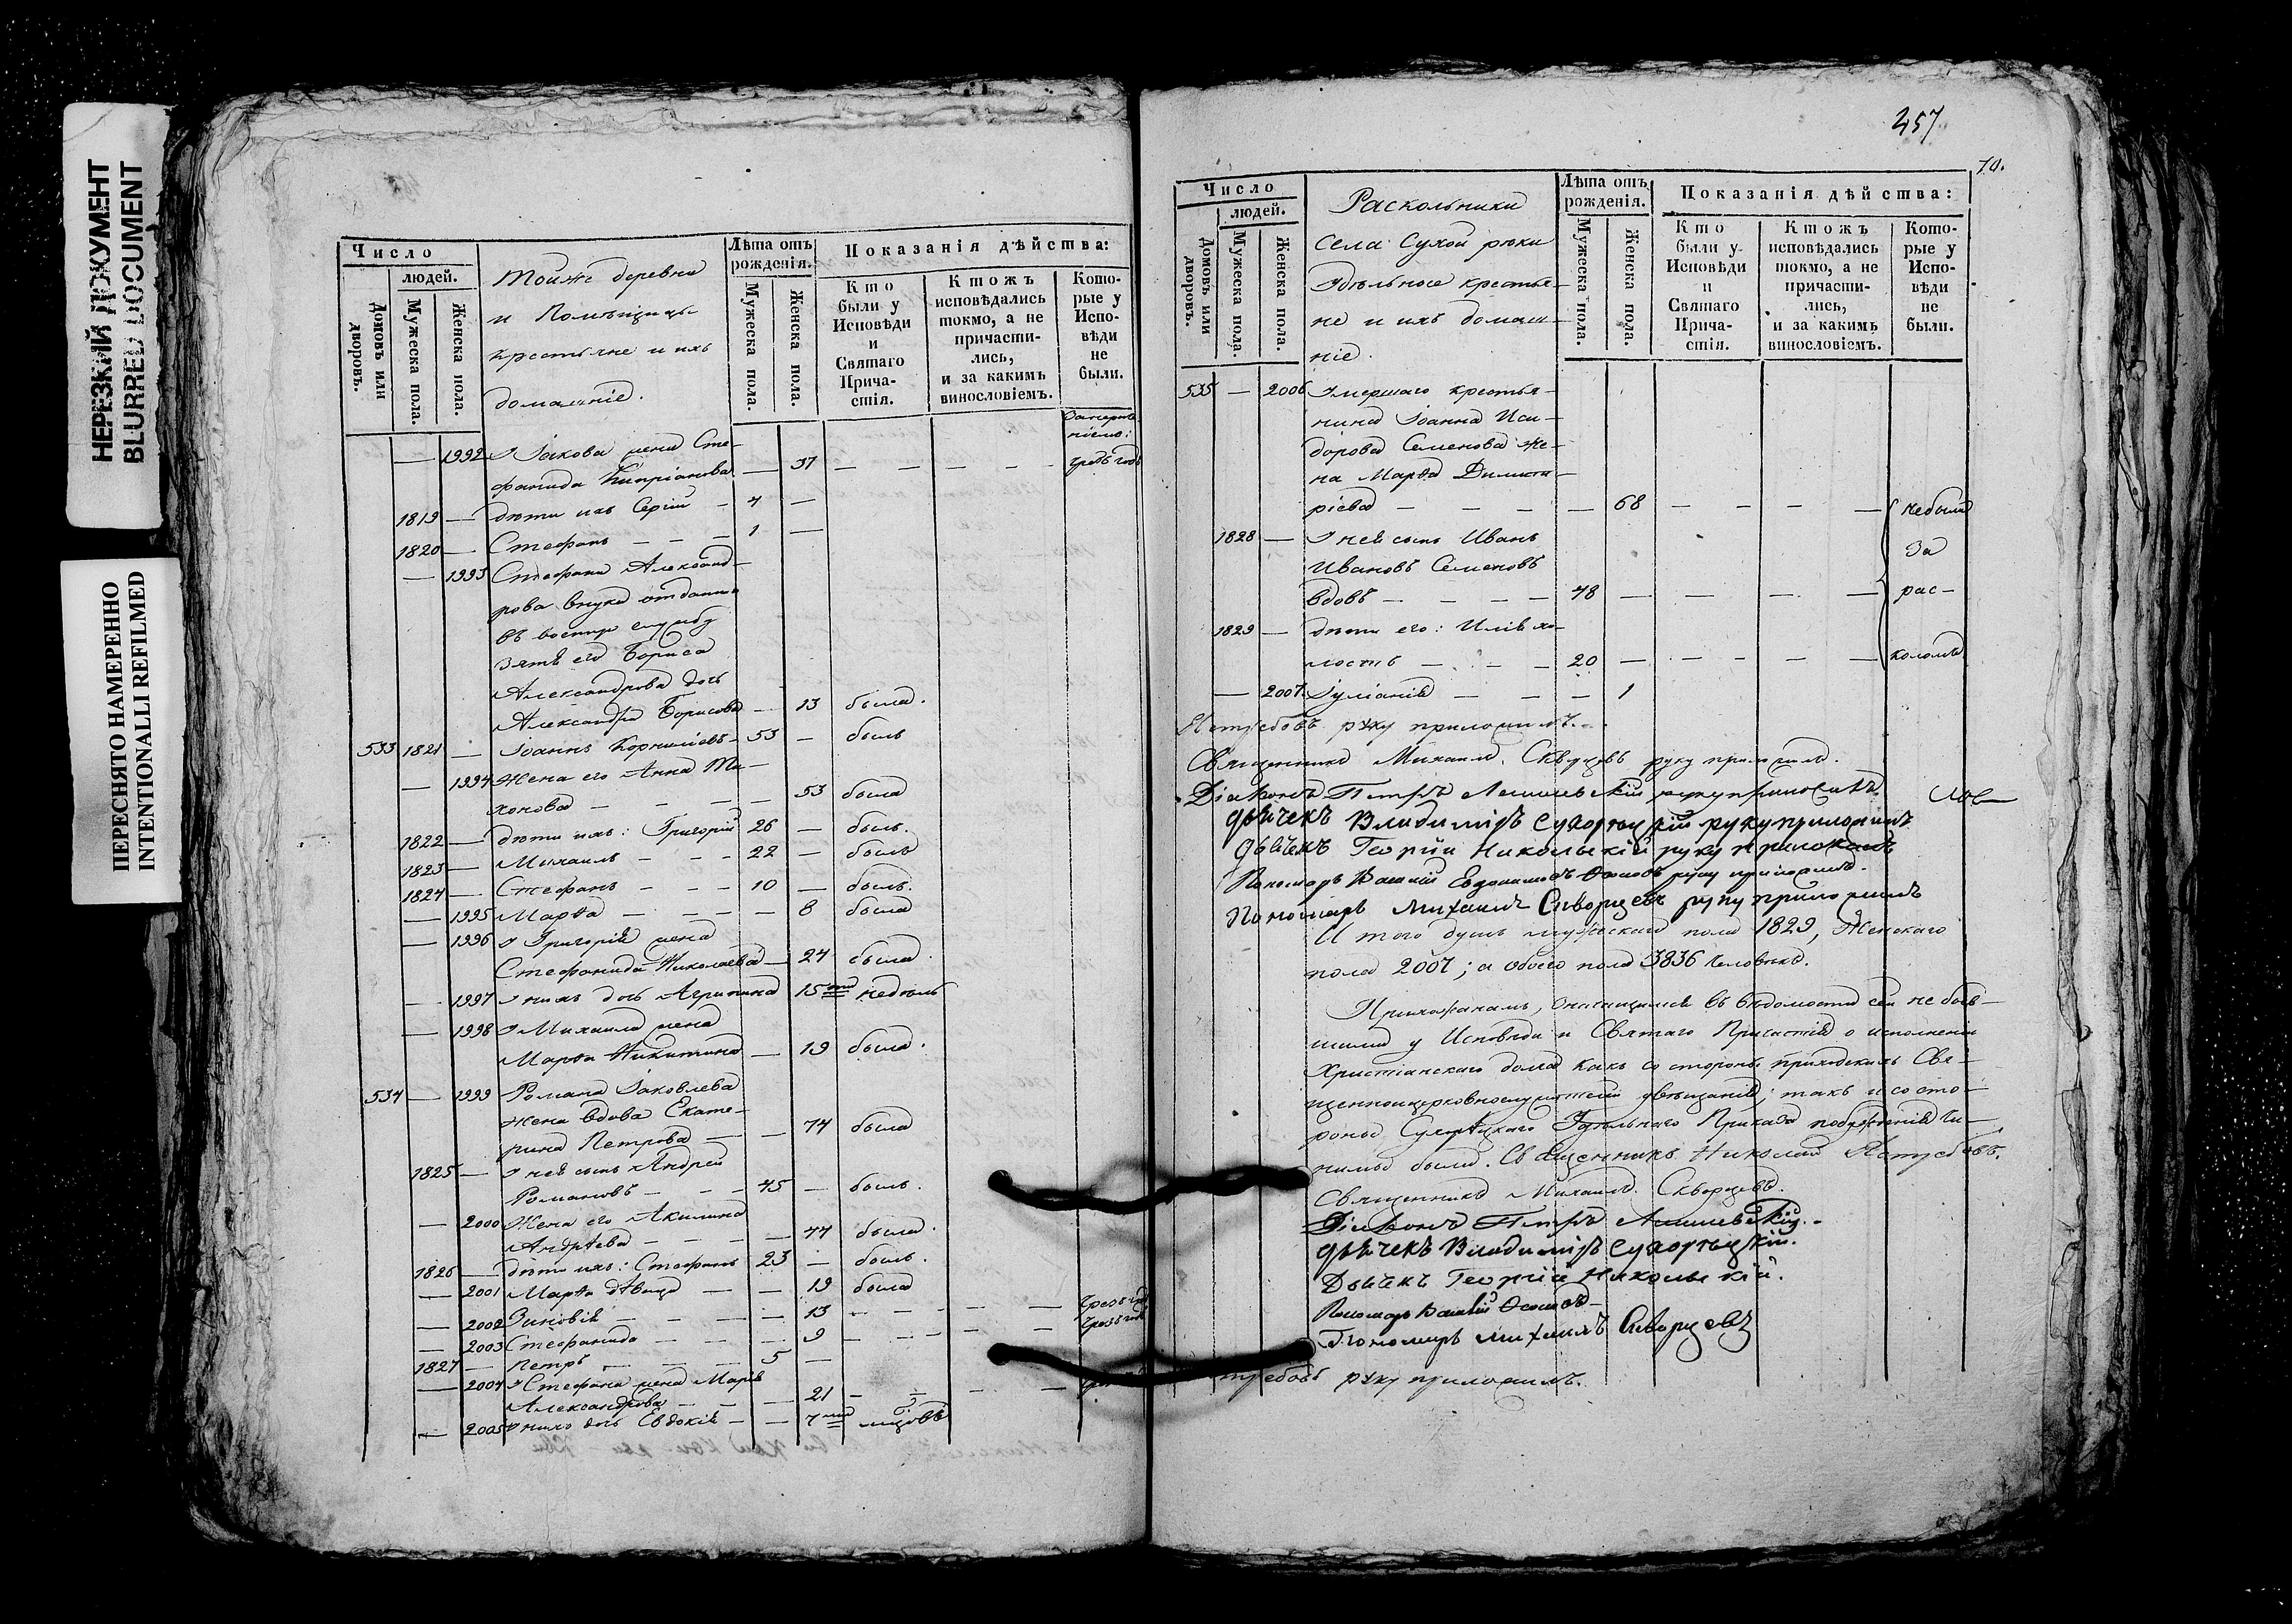 НЕРЕЗКИЙ ДОКУМЕНТ
BLURRED DOCUMENT
ПЕРЕСНЯТО НАМЕРЕННО
INTENTIONALLI REFILMED
Число
людей.
Домовъ или дворовъ.
Мужеска пола.
Женска пола.
Тойже деревни
и Помѣщицы
крестьяне и ихъ
домашніе.
Лѣта отъ рожденія.
Мужеска пола.
Женска пола.
Показанія дѣйства:
Кто были у Исповѣди и Святаго Причастія.
Ктожъ исповѣдались токмо, а не причастились, и за какимъ винословіемъ.
Которые у Исповѣди не были.
— 1992 У Іакова жена Сте-
фанида Кипріанова — 37 — — — —
1819 — дѣти ихъ Сергій — 4 —
1820 — Стефанъ — — — 1 —
— 1993 Стефана Александ-
рова внука отданна
въ военную службу
зятя его Бориса
Александрова дочь
Александра Борисова — 13 была.
533 1821 — Іоаннъ Корнилиевъ — 53 — былъ
— 1994 Жена его Анна Ти-
хонова — — — — 53 была
1822 — дѣти ихъ: Григорій 26 — былъ.
1823 — Михаилъ — — — 22 — былъ
1824 — Стефанъ — — — 10 — былъ.
— 1995 Марѳа — — — — 8 была
— 1996 У Григорія жена
Стефанида Николаева — 24 была.
— 1997 У нихъ дочь Агрипина 15ти недѣль
— 1998 У Михаила жена
Марѳа Никитина — 19 была.
534 — 1999 Романа Іаковлева
жена вдова Екате-
рина Петрова — — 74 была
1825 — У ней сынъ Андрей
Романовъ — — — 45 — былъ.
— 2000 Жена его Акилина
Андрѣева — — — — 44 была.
1826 — дѣти ихъ: Стефанъ 23 — былъ.
— 2001 Марѳа дѣвица — — 19 была
— 2002 Зиновія — — — — 13 — — — — — чрезъ год
— 2003 Стефанида — — — 9 — — — — — чрезъ год
1827 — Петръ — — — 5 —
— 2004 У Стефана жена Марія
Александрова — — — 21 — — — —
— 2005 У нихъ дочь Евдокія — — 7ми мѣсяцовъ
457
70.
Число
людей.
Домовъ или дворовъ.
Мужеска пола.
Женска пола.
Раскольники
Села Сухой рѣки
удѣльные крестья-
не и ихъ домаш-
ніе.
Лѣта отъ рожденія.
Мужеска пола.
Женска пола.
Показанія дѣйства:
Кто были у Исповѣди и Святаго Причастія.
Ктожъ исповѣдались токмо, а не причастились, и за какимъ винословіемъ.
Которые у Исповѣди не были.
535 — 2006 Умершаго крестья-
нина Іоанна Иси-
дорова Семенова же-
на Марѳа Димит-
ріева — — — — 68 — — — — не были
1828 — У ней сынъ Иванъ
за
Ивановъ Семеновъ
вдовъ — — — — 48 — — — — рас-
1829 — дѣти его: Илія хо-
лостъ — — — 20 — — — — — коломъ
— 2007 Іуліанія — — — 1
руку приложилъ.
Священникъ Михаилъ Скворцовъ руку приложилъ.
Діаконъ Петръ руку приложилъ.
Дьячекъ Владиміръ руку приложилъ
Дьячекъ Георгій Никольскій руку приложилъ
Пономарь руку приложилъ.
Пономарь Михаилъ Скворцевъ руку приложилъ
Итого душъ мужескаго пола 1829, Женскаго
пола 2007; а обоего пола 3836 человѣкъ.
Прихожанамъ, значащимся въ вѣдомости сей не быв-
шими у Исповѣди и Святаго Причастія о исполненіи
Христіанскаго долга какъ со стороны приходскихъ Свя-
щенноцерковнослужителей увѣщанія; такъ и со сто-
роны Удѣльнаго Приказа чи-
нимы были. Священникъ Николай
Священникъ Михаилъ Скворцевъ.
Діаконъ Петръ
Дьячекъ Владиміръ
Дьячекъ Георгій Никольскій.
Пономарь
Пономарь Михаилъ Скворцевъ
руку приложилъ.